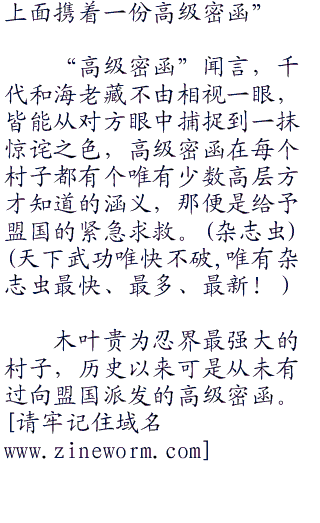 上面携着一份高级密函”
“高级密函”闻言，千
代和海老藏不由相视一眼，
皆能从对方眼中捕捉到一抹
惊诧之色，高级密函在每个
村子都有个唯有少数高层方
才知道的涵义，那便是给予
盟国的紧急求救。(杂志虫)
(天下武功唯快不破,唯有杂
志虫最快、最多、最新！)
木叶贵为忍界最强大的
村子，历史以来可是从未有
过向盟国派发的高级密函。
[请牢记住域名
www.zineworm.com]